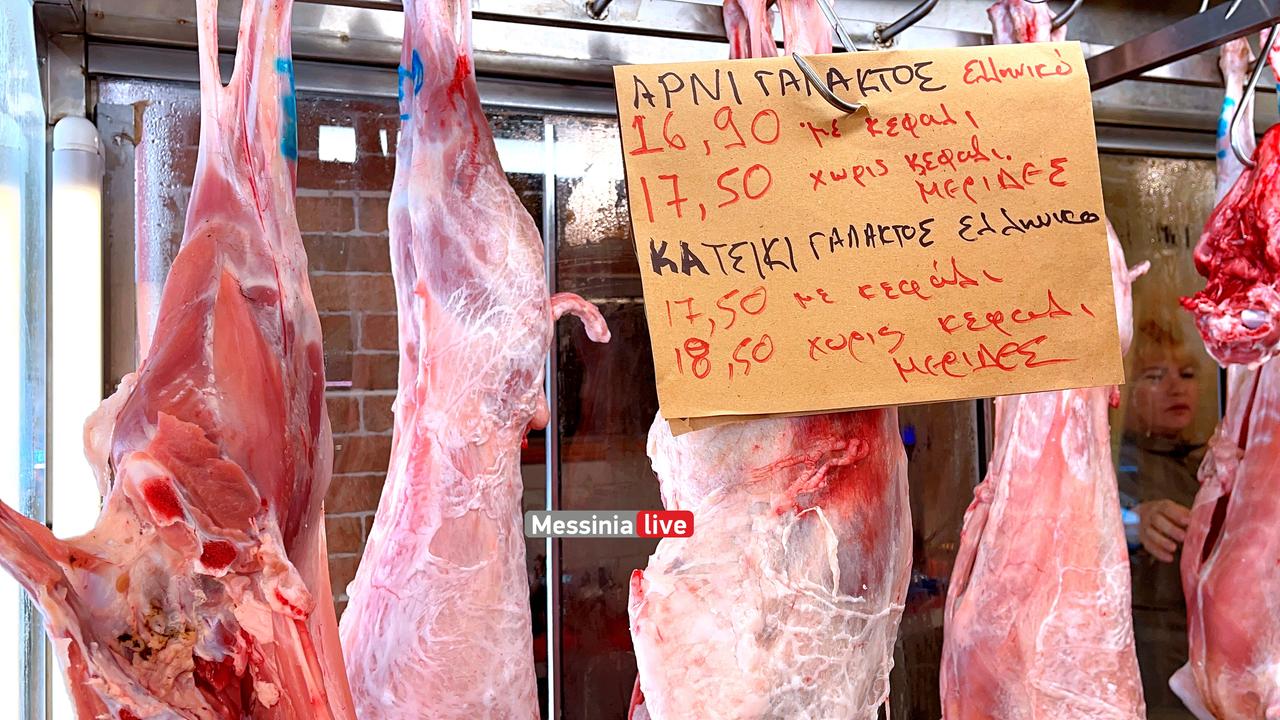 ΑΡΝΙ ΓΑΛΑΚΤΟΣ Ελληνικό
16,90 με κεφαλι
17,50 χωρις κεφαλι.
ΜΕΡΙΔΕΣ
ΚΑΤΣΙΚΙ ΓΑΛΑΚΤΟΣ Ελληνικο
17,50 με κεφάλι
18,50 χωρις κεφαλι
ΜΕΡΙΔΕΣ
Messinia live